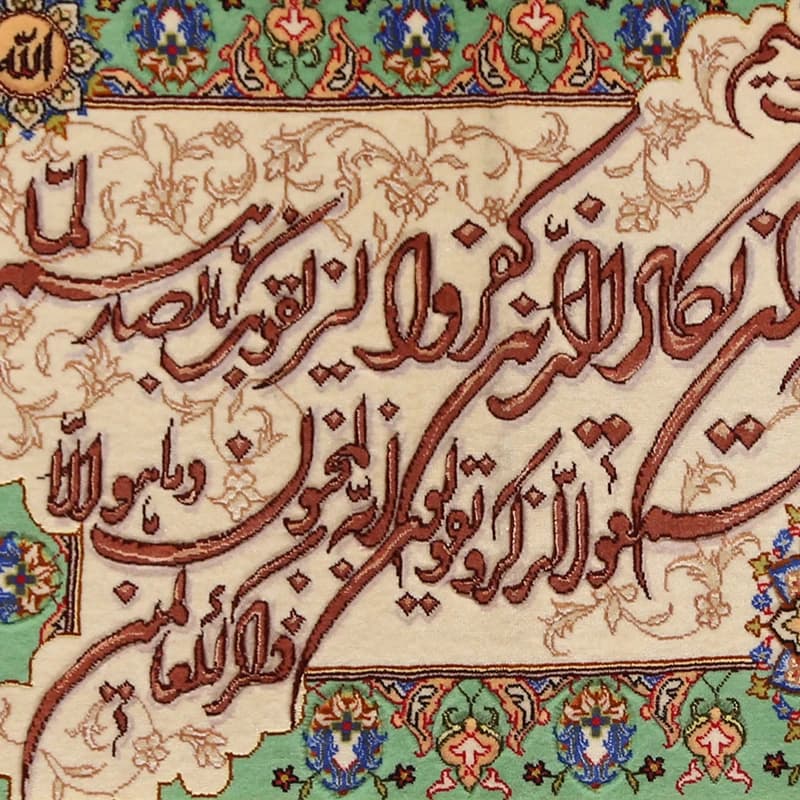 الله
ان يكاد الذين كفروا ليزلقونك بابصارهم لمّا
سمعوا الذكر و يقولون انّه لمجنون و ما هو الّا
ذكر للعالمين